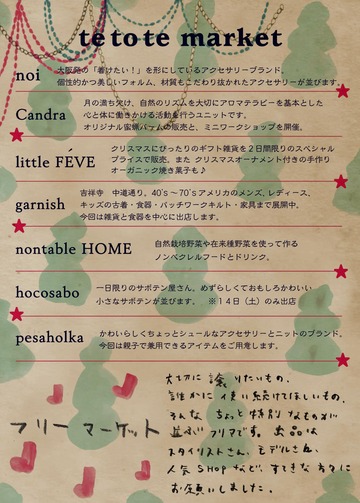 te to te market
noi
大阪発の「着けたい!」を形にしているアクセサリーブランド。
個性的かつ美しいフォルム、材質もこだわり抜かれたアクセサリーが並びます。
Candra
月の満ち欠け、自然のリズムを大切にアロマテラピーを基本とした
心と体に働きかける活動を行うユニットです。
オリジナル蜜蝋バームの販売と、ミニワークショップを開催。
little FÉVE
クリスマスにぴったりのギフト雑貨を2日間限りのスペシャル
プライスで販売。また クリスマスオーナメント付きの手作り
オーガニック焼き菓子も♪
garnish
吉祥寺 中道通り。40's~70'sアメリカのメンズ, レディース,
キッズの古着・食器・パッチワークキルト・家具まで展開中。
今回は雑貨と食器を中心に出店します。
nontable HOME
自然栽培野菜や在来種野菜を使って作る
ノンベクレルフードとドリンク。
hocosabo
一日限りのサボテン屋さん。めずらしくておもしろかわいい
小さなサボテンが並びます。 ※14日(土)のみ出店
pesaholka
かわいらしくちょっとシュールなアクセサリーとニットのブランド。
今回は親子で兼用できるアイテムをご用意します。
フリーマーケット
大切に 譲りたいもの、
誰かに 使い続けてほしいもの、
そんな ちょっと特別なものが
並ぶ フリマです。出品は
スタイリストさん、モデルさん、
人気SHOPなど、すてきな方々に
お願いしました。